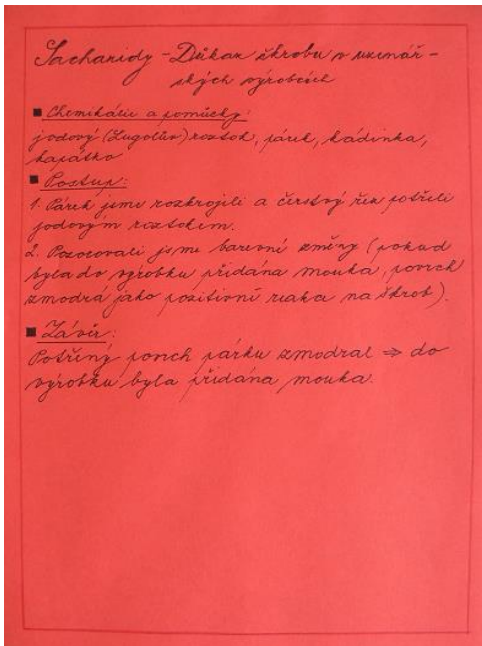 Sacharidy - Důkaz škrobu v uzenář-
ských výrobcích
Chemikálie a pomůcky:
jodový (Lugolův) roztok, párek, kádinka,
kapátko
Postup:
1. Párek jsme rozkrojili a čerstvý řez potřeli
jodovým roztokem.
2. Pozorovali jsme barevné změny (pokud
byla do výrobku přidána mouka, povrch
zmodrá jako pozitivní reakce na škrob).
Závěr:
Potřený povrch párku zmodral ⇒ do
výrobku byla přidána mouka.